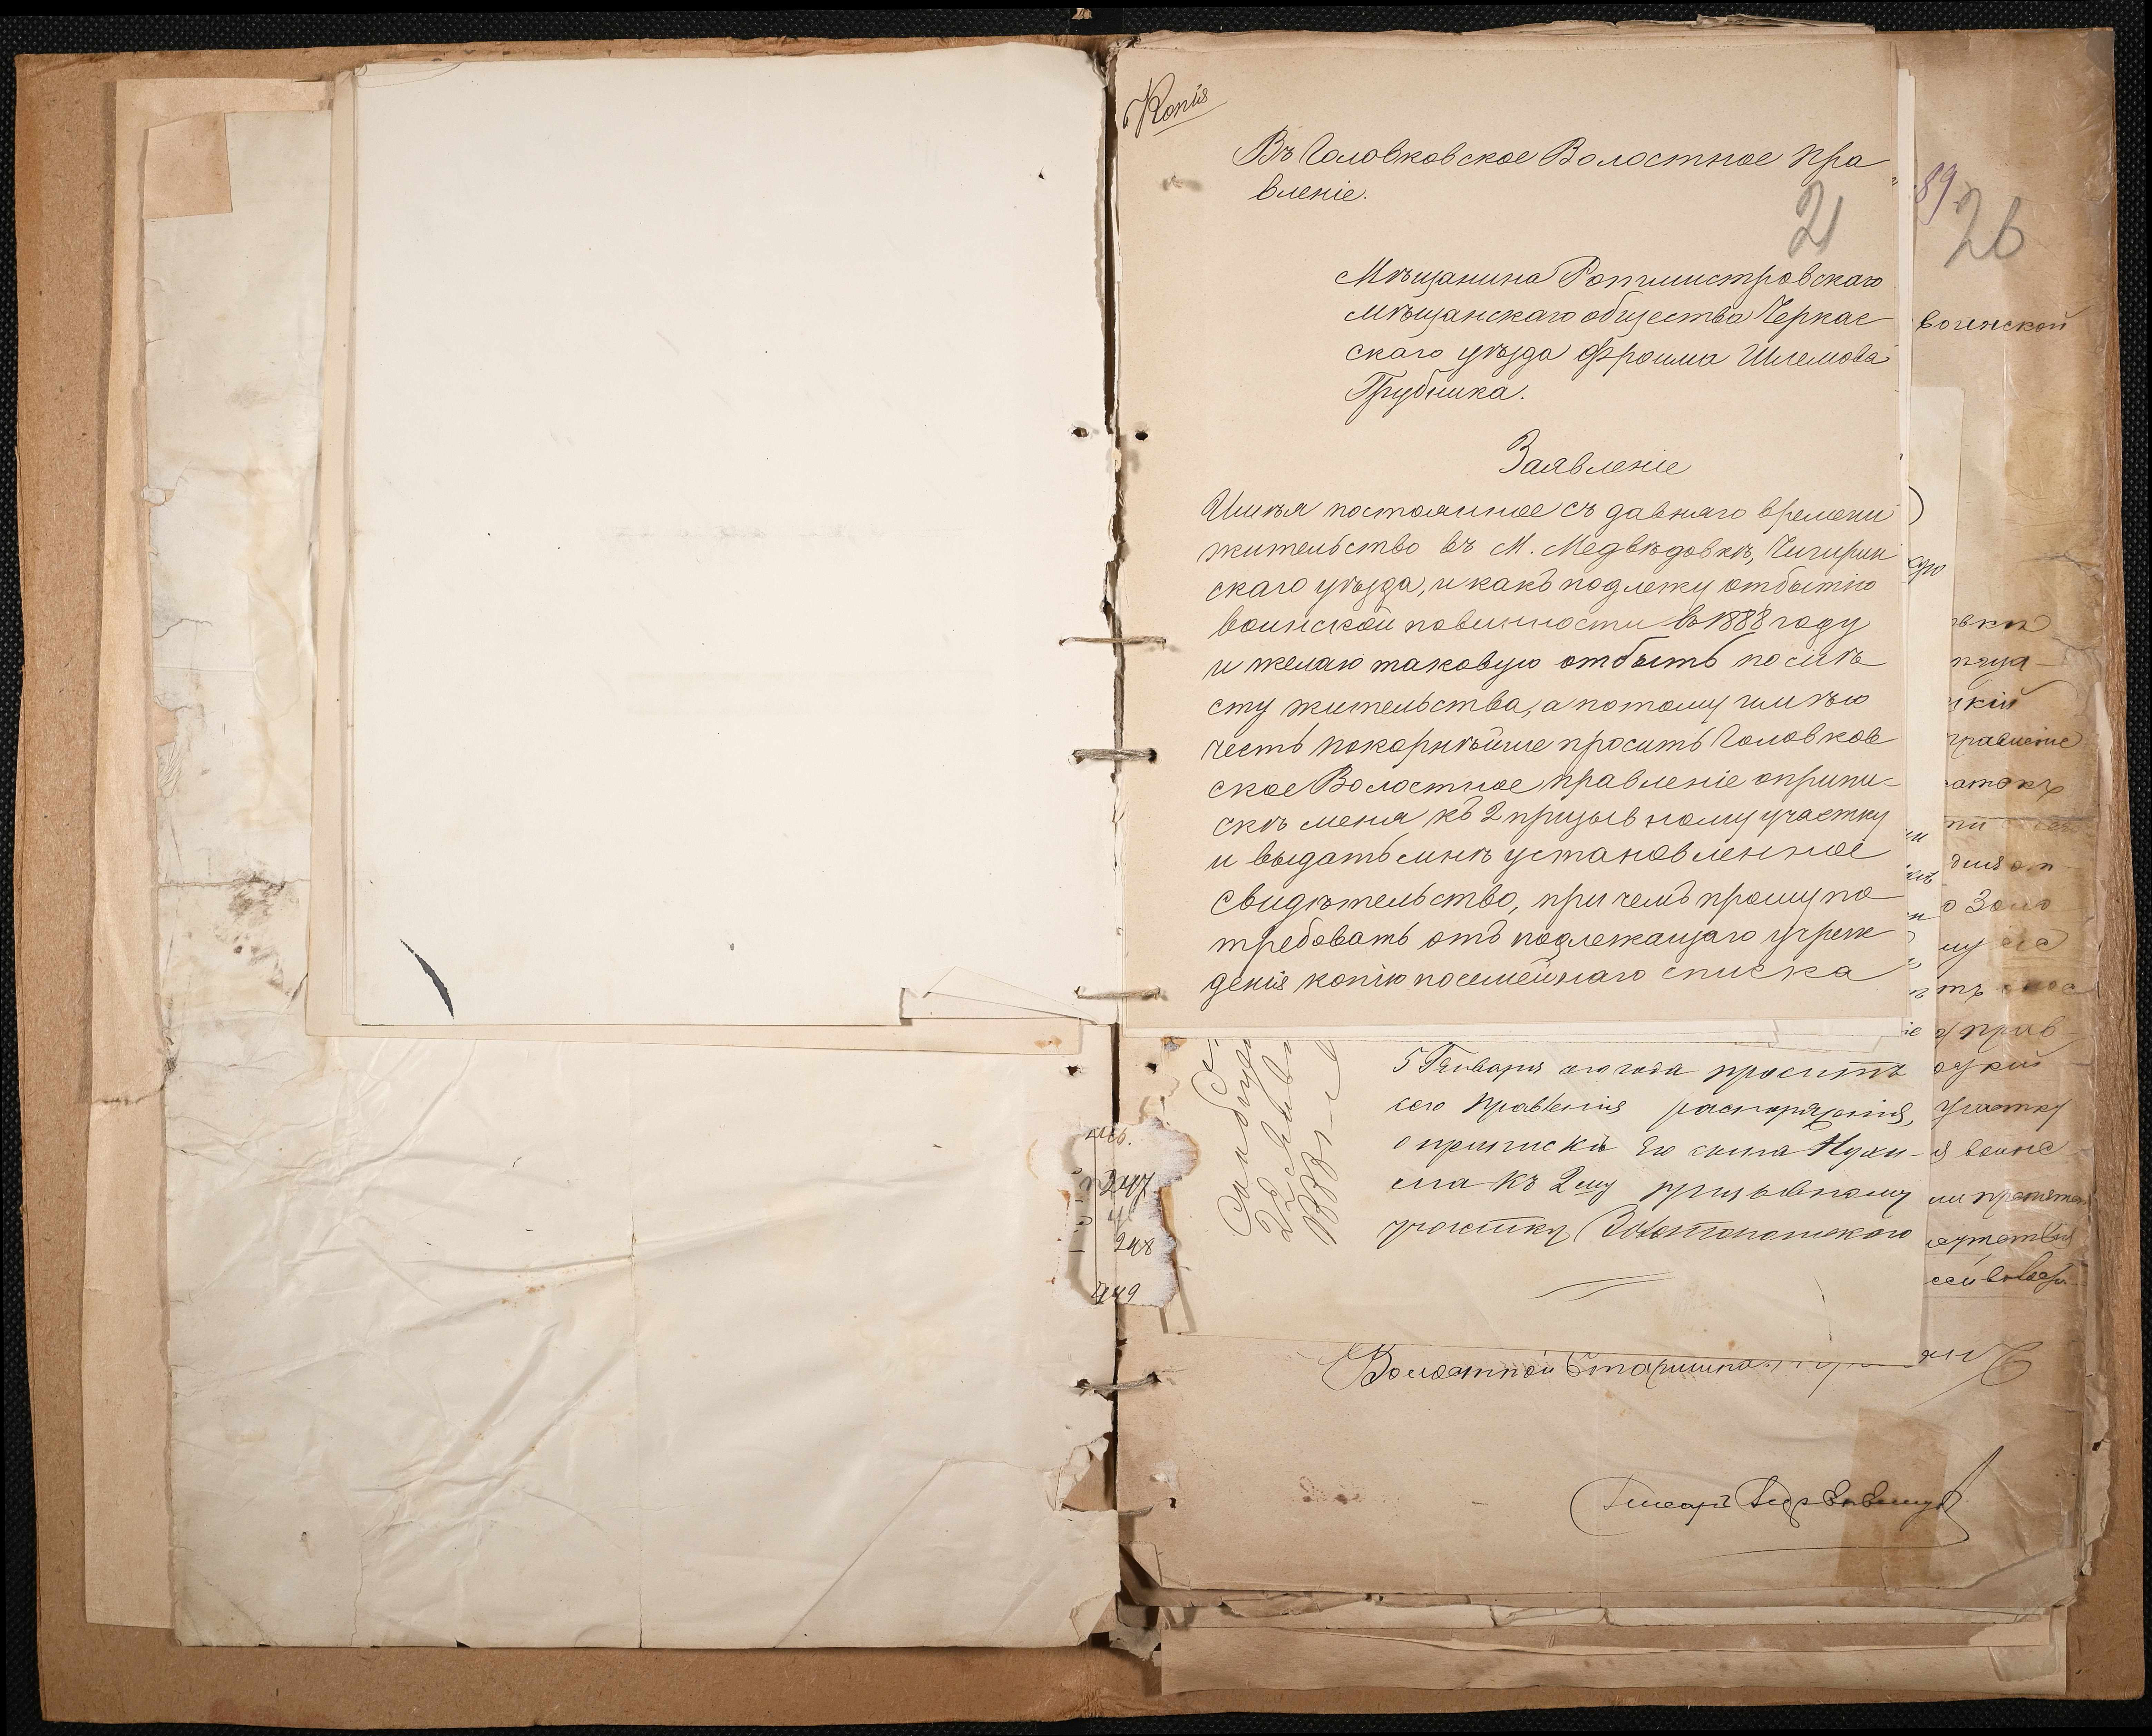 Копія
Въ Головковское Волостное Пра
вленіе.
21
Мѣщанина Ротмистровскаго
мѣщанскаго общества Черкас
скаго уѣзда Фроима Шлемова
Трубника.
Заявленіе
Имѣя постоянное съ давняго времени
жительство въ М. Медвѣдовкѣ, Чигирин
скаго уѣзда, и какъ подлежу отбытію
воинской повинности въ 1888 году
и желаю таковую отбыть по мѣ
сту жительства, а потому имѣю
честь покорнѣйше просить Головков
ское Волостное Правленіе о припи-
скѣ меня къ 2 призывному участку
и выдать мнѣ установленное
свидѣтельство, при чемъ прошу по
требовать отъ подлежащаго учреж
денія копію посемейнаго списка
5 Января сего года проситъ
сего Правленія распоряженія,
о припискѣ его сына
къ 2му призывному
участку Золотоношскаго
247
248
249
Волостной Старшина
Писарь
89
26
воинской
вки
кій
правленіе
о Золо
прив
участку